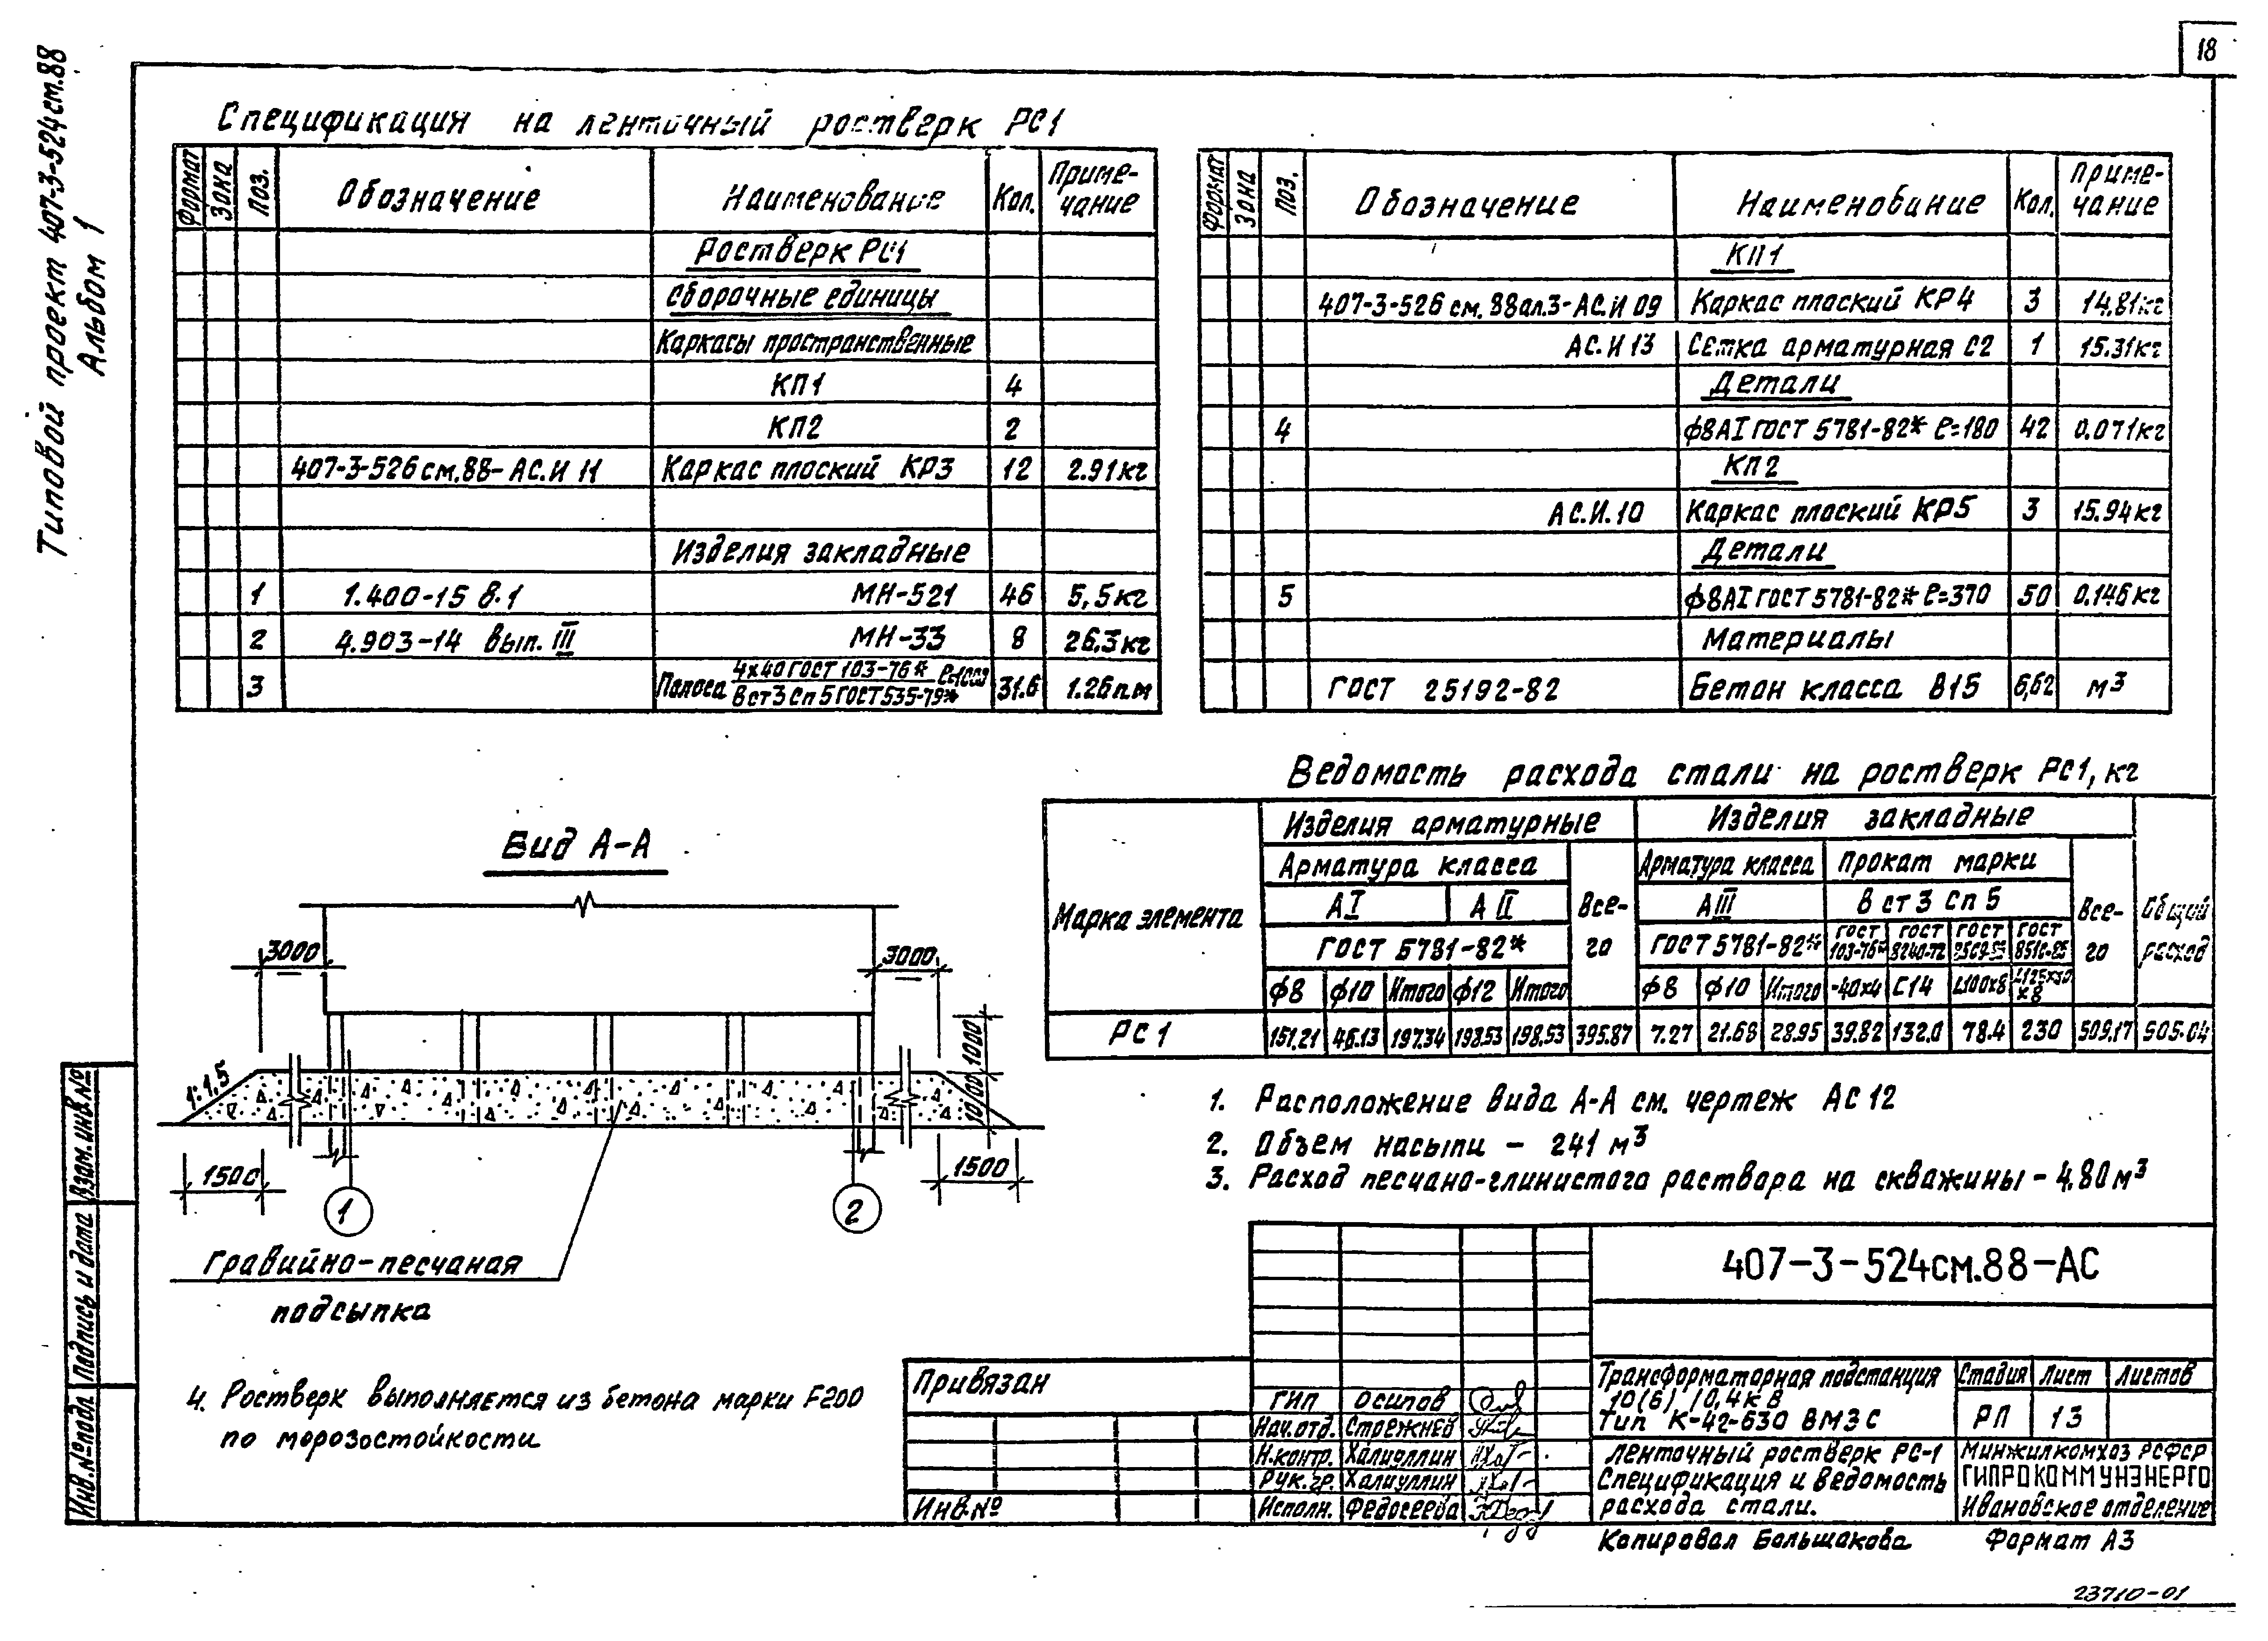 18
Типовой проект 407-3-524см.88
Альбом 1
Спецификация на ленточный ростверк РС1
Формат Зона Поз. Обозначение Наименование Кол. Приме-чание
Ростверк РС1
Сборочные единицы
Каркасы пространственные
КП1 4
КП2 2
407-3-526см.88-АС.И 11 Каркас плоский КР3 12 2.91кг
Изделия закладные
1 1.400-15 В.1 МН-521 46 5,5кг
2 4.903-14 вып. III МН-33 8 26.3кг
3 Полоса 4х40 ГОСТ 103-76* ℓ=1000 31.6 1.26п.м
В ст 3 Сп 5 ГОСТ 535-79*
Формат Зона Поз. Обозначение Наименование Кол. Приме-чание
КП1
407-3-526 см. 88ал.3-АС.И 09 Каркас плоский КР4 3 14.81кг
АС.И 13 Сетка арматурная С2 1 15.31кг
Детали
4 ф8АI ГОСТ 5781-82* ℓ=180 42 0.071кг
КП2
АС.И.10 Каркас плоский КР5 3 15.94кг
Детали
5 ф8АI ГОСТ 5781-82* ℓ=370 50 0.146кг
Материалы
ГОСТ 25192-82 Бетон класса В15 6,62 м3
Ведомость расхода стали на ростверк РС1, кг
Марка элемента Изделия арматурные Изделия закладные Общий расход
Арматура класса Все-го Арматура класса Прокат марки Все-го
АI АII АIII В ст 3 Сп 5
ГОСТ 5781-82* ГОСТ 5781-82* ГОСТ 103-76* ГОСТ 8240-72 ГОСТ ГОСТ
ф8 ф10 Итого ф12 Итого ф8 ф10 Итого -40х4 С14 L100х8
РС 1 151.21 46.13 197.34 198.53 198.53 395.87 7.27 21.68 28.95 39.82 132.0 78.4 230 509.17 905.04
Вид А-А
3000 3000
1000
1000
1:1.5
1500 1500
1 2
Гравийно-песчаная
подсыпка
1. Расположение вида А-А см. чертеж АС 12
2. Объем насыпи - 241 м3
3. Расход песчано-глинистого раствора на скважины - 4.80м3
4. Ростверк выполняется из бетона марки F200
по морозостойкости
407-3-524см.88-АС
Привязан
Инв.№
ГИП Осипов
Нач.отд. Стрежнев
Н.контр. Халиуллин
Рук.гр. Халиуллин
Исполн. Федосеева
Трансформаторная подстанция
10(6)/0,4кВ
Тип К-42-630 ВМЗС
Стадия Лист Листов
РП 13
Ленточный ростверк РС-1
Спецификация и ведомость
расхода стали.
Минжилкомхоз РСФСР
ГИПРОКОММУНЭНЕРГО
Ивановское отделение
Копировал Большакова Формат А3
Взам.инв.№
Подпись и дата
Инв.№подл
23710-01